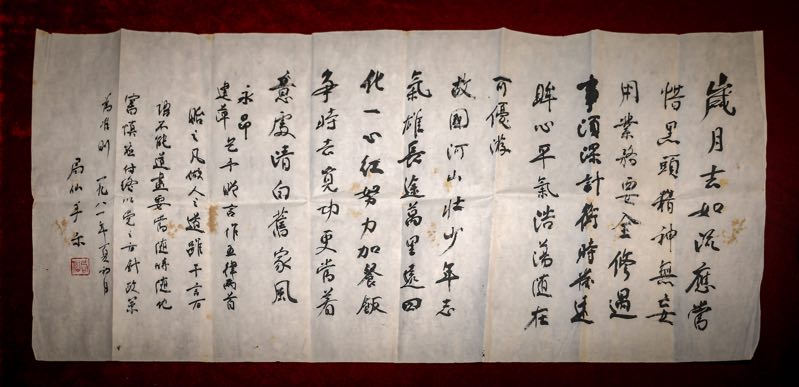 歲月去如流應當
惜黑頭精神無妄
用業務要全修遇
事須深計衡時遠
眸心平氣浩蕩隨在
可優游
故國河山壯少年志
氣雄長途萬里遠四
化一心紅努力加餐飯
爭時去覓功更當着
意處清白舊家風
永昂
建華 言作五律兩首
貽之凡做人之道雖千言万
語不能道盡要當隨時隨地
審慎應付終以党之方針政策
為准則 一九八一年夏初
局仙手示